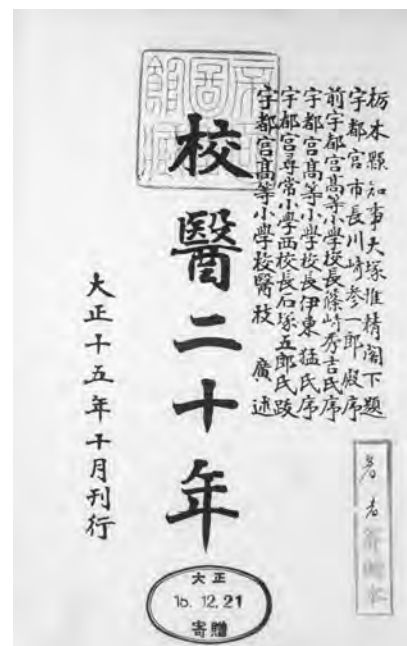 栃木縣知事大塚惟精閣下題
宇都宮市長川崎参一郎殿序
前宇都宮高等小學校長篠崎秀吉氏序
宇都宮高等小學校長伊東猛氏序
宇都宮尋常小學西校長石塚五郎氏跋
宇都宮高等小學校醫枝 廣述
校醫二十年
大正十五年十月刊行
著者
大正
15.12.21
寄贈